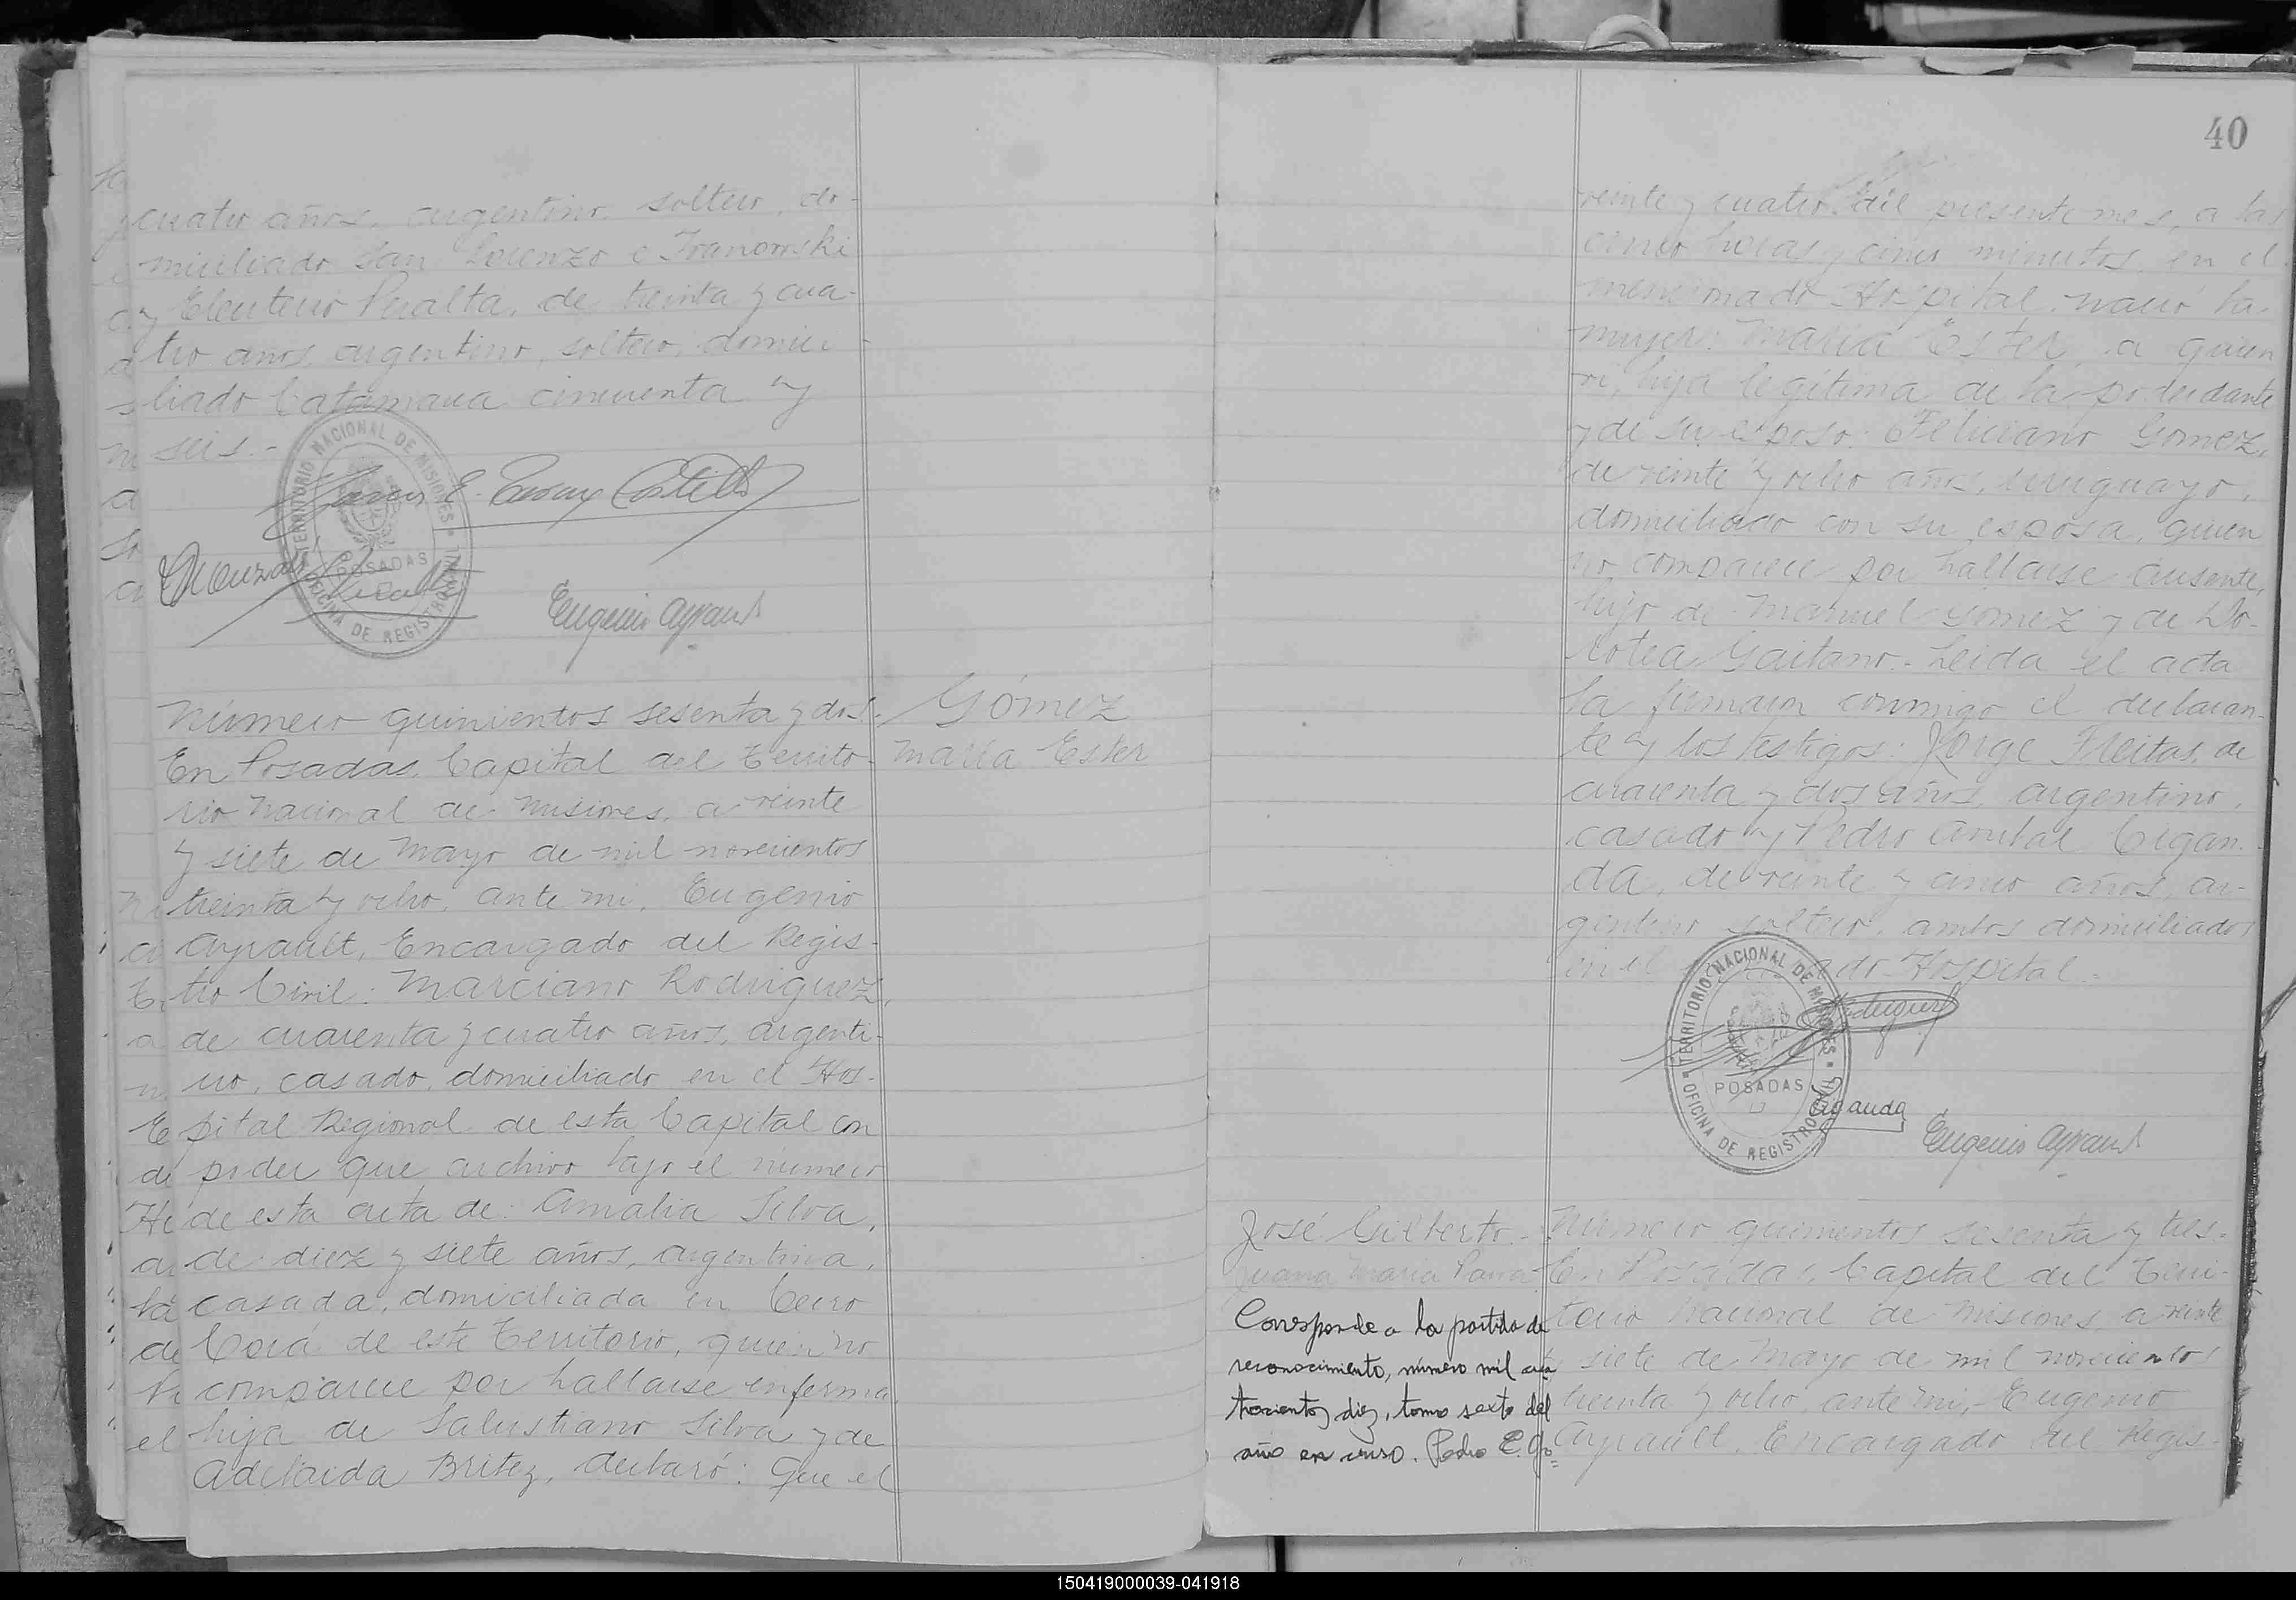 y cuatro años, argentino, soltero, do-
miciliado San Lorenzo e Ivanowski
y Eleuterio Peralta, de treinta y cua-
tro años, argentino, soltero, domici-
liado Catamarca cincuenta y
seis.-
TERRITORIO NACIONAL DE MISIONES
POSADAS
OFICINA DE REGISTRO CIVIL
Eugenio Ayrault
Número quinientos sesenta y dos.-
En Posadas, Capital del Territo-
rio Nacional de Misiones, a veinte
y siete de Mayo de mil novecientos
treinta y ocho, ante mi, Eugenio
Ayrault, Encargado del Regis-
tro Civil: Marciano Rodriguez,
de cuarenta y cuatro años, argenti-
no, casado, domiciliado en el Hos-
pital Regional de esta Capital con
poder que archivo bajo el número
de esta acta de: Amalia Silva,
de diez y siete años, argentina,
casada, domiciliada en Cerro
Corá de este Territorio, quien no
comparece por hallarse enferma
hija de Salustiano Silva y de
Adelaida Britez, declaró: Que el
Gómez
María Ester
40
veinte y cuatro del presente mes, a las
cinco horas y cinco minutos, en el
mencionado Hospital, nació la
mujer: María Ester, a quien
ví, hija legítima de la poderdante
y de su esposo: Feliciano Gomez,
de veinte y ocho años, uruguayo,
domiciliado con su esposa, quien
no comparece por hallarse ausente,
hijo de Manuel Gomez y de Do-
rotea Gaitano.- Leida el acta
la firmaron conmigo el declaran-
te y los testigos: Jorge Fleitas, de
cuarenta y dos años, argentino,
casado y Pedro Anibal Cigan-
da, de veinte y cinco años, ar-
gentino soltero, ambos domiciliados
en el do Hospital.-
TERRITORIO NACIONAL DE MISIONES
POSADAS
OFICINA DE REGISTRO CIVIL
Ciganda
Eugenio Ayrault
José Gilberto.-
Juana María
Corresponde a la partida de
reconocimiento, número mil cua
trocientos diez, tomo sexto del
año en curso. Pedro E.
Número quinientos sesenta y tres.-
En Posadas, Capital del Terri-
torio Nacional de Misiones, a veinte
y siete de Mayo de mil novecientos
treinta y ocho, ante mi, Eugenio
Ayrault, Encargado del Regis-
150419000039-041918